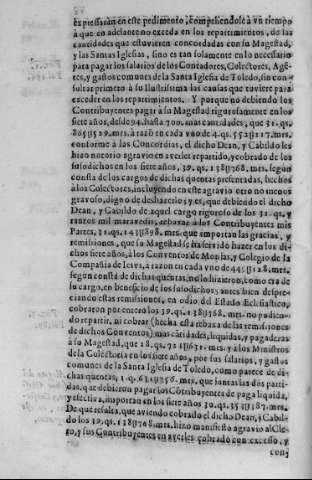 expressaran en este pedimento, compeliendole à vn tiempo
à que en adelante no exceda en los repartimientos, de las
cantidades que estuvieren concordadas con su Magestad,
y las Santas Iglesias, sino es tan solamente en lo necessario
para pagar los salarios de los Contadores, Colectores, Agẽ-
tes, y gastos comunes de la Santa Iglesia de Toledo, sin con-
sultar primero à su Ilustrissima las causas que tuviere para
exceder en los repartimientos. Y porque no debiendo los
Contribuyentes pagar à su Magestad rigurosamente en los
siete años, desde 94. hasta 700. mas cantidades, que 31. qs.
mrs. à razõ en cada vno de 4. qs.
conforme à las Concordias, el dicho Dean, y Cabildo les
hizo notorio agravio en averles repartido, y cobrado de los
susodichos en los siete años, 39. qs. 138U768. mrs. segun
consta de los cargos de dichas quentas presentadas, hechos
à los Colectores, incluyendo en este agravio otro no menos
gravoso, digno de deshazerlo; y es, que debiendo el dicho
Dean, y Cabildo de aquel cargo riguroso de los 31. qs. y
tantos mil maravedis, rebaxar à los Contribuyentes mis
Partes, 31. qs. 143U898. mrs. que importan las gracias, y
remisiones, que su Magestad se ha servido hazer en los di-
chos siete años, à los Conventos de Monjas, y Colegio de la
Compañia de Iesvs, à razon en cada vno de 449U128. mrs.
segun consta de dichas quentas, no lo hizieron, como era de
su cargo, en beneficio de los susodichos; antes bien despre-
ciando estas remisiones, en odio del Estado Eclesiastico,
cobraron por entero los 39. qs. 138U768. mrs. no pudien-
do repartir, ni cobrar (hecha esta rebaxa de las remisiones
de dichos Conventos) mas cãtidades, liquidas, y pagaderas
à su Magestad, que 28. qs. 721U631. mrs. y à los Ministros
de la Colectoria en los siete años, por sus salarios, y gastos
comunes de la Santa Iglesia de Toledo, como parece de di-
chas quentas, 1. q. mrs. que juntas las dos parti-
das, que debieron pagar los Cõtribuyentes de paga liquida,
y efectiva, importan en los siete años 30. qs. 355U187. mrs.
De que resulta, que aviendo cobrado el dicho Dean, y Cabil-
do los 39. qs. 138U768. mrs. hizo manifiesto agravio al Cle-
ro, y sus Contribuyentes en averles cobrado con excesso, y
con-